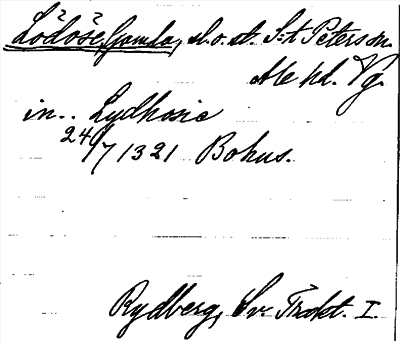 Lödöse, Gamla, d.o.d. S:t Peters sn.
Ale hd. Vg.
in.. Lydhosie
24/7 1321 Bohus.
Rydberg, Sv. Trakt. I.